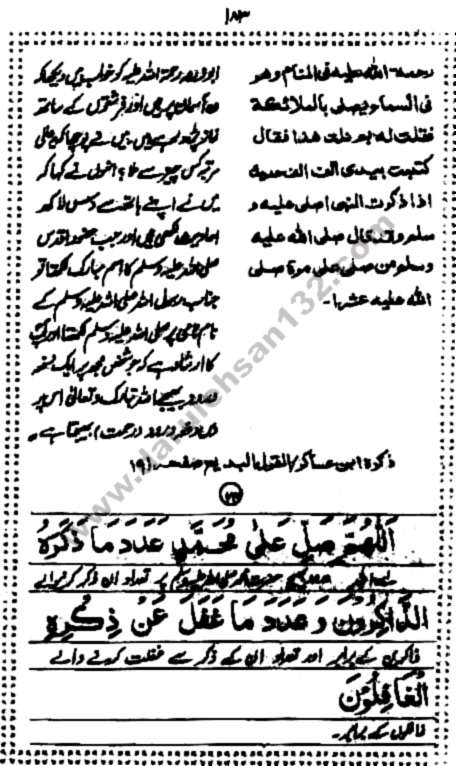 ۱۸۳
رحمة الله عليه فى المنام وهو
فى السماء يصلى بالملائكة
فقلت له بم نلت هذا فقال
كتبت بيدى الف الف حديث
اذا ذكرت النبى اصلى عليه و
سلم وقد قال صلى الله عليه
وسلم من صلى على مرة صلى
الله عليه عشرا۔
ابوزرعہ رحمۃ اللہ علیہ کو خواب میں دیکھا کہ
وہ آسمان پر ہیں اور فرشتوں کے ساتھ
نماز پڑھ رہے ہیں میں نے پوچھا کہ یہ عالی
مرتبہ کس چیز سے ملا؟ انہوں نے کہا کہ
میں نے اپنے ہاتھ سے دس لاکھ
احادیث لکھی ہیں اور جب حضور اقدس
صلی اللہ علیہ وسلم کا اسم مبارک لکھتا تو
جناب رسول اللہ صلی اللہ علیہ وسلم کے
نام نامی پر صلی اللہ علیہ وسلم لکھتا اور آپ
کا ارشاد ہے کہ جو شخص مجھ پر ایک دفعہ
درود بھیجے اللہ تبارک و تعالیٰ اس پر
دس دفعہ درود (رحمت) بھیجتا ہے۔
ذكره ابن عساكر/القول البديع صفحہ ۱۹۱
اَللّٰهُمَّ صَلِّ عَلٰى مُحَمَّدٍ عَدَدَ مَا ذَكَرَهُ
اے اللہ حضرت محمد صلی اللہ علیہ وسلم پر تعداد ان ذکر کرنے والے
الذَّاكِرُوْنَ وَ عَدَدَ مَا غَفَلَ عَنْ ذِكْرِهِ
ذاکرین کے برابر اور تعداد ان کے ذکر سے غفلت کرنے والے
الْغَافِلُوْنَ
غافلوں کے برابر۔
www.darulehsan132.com